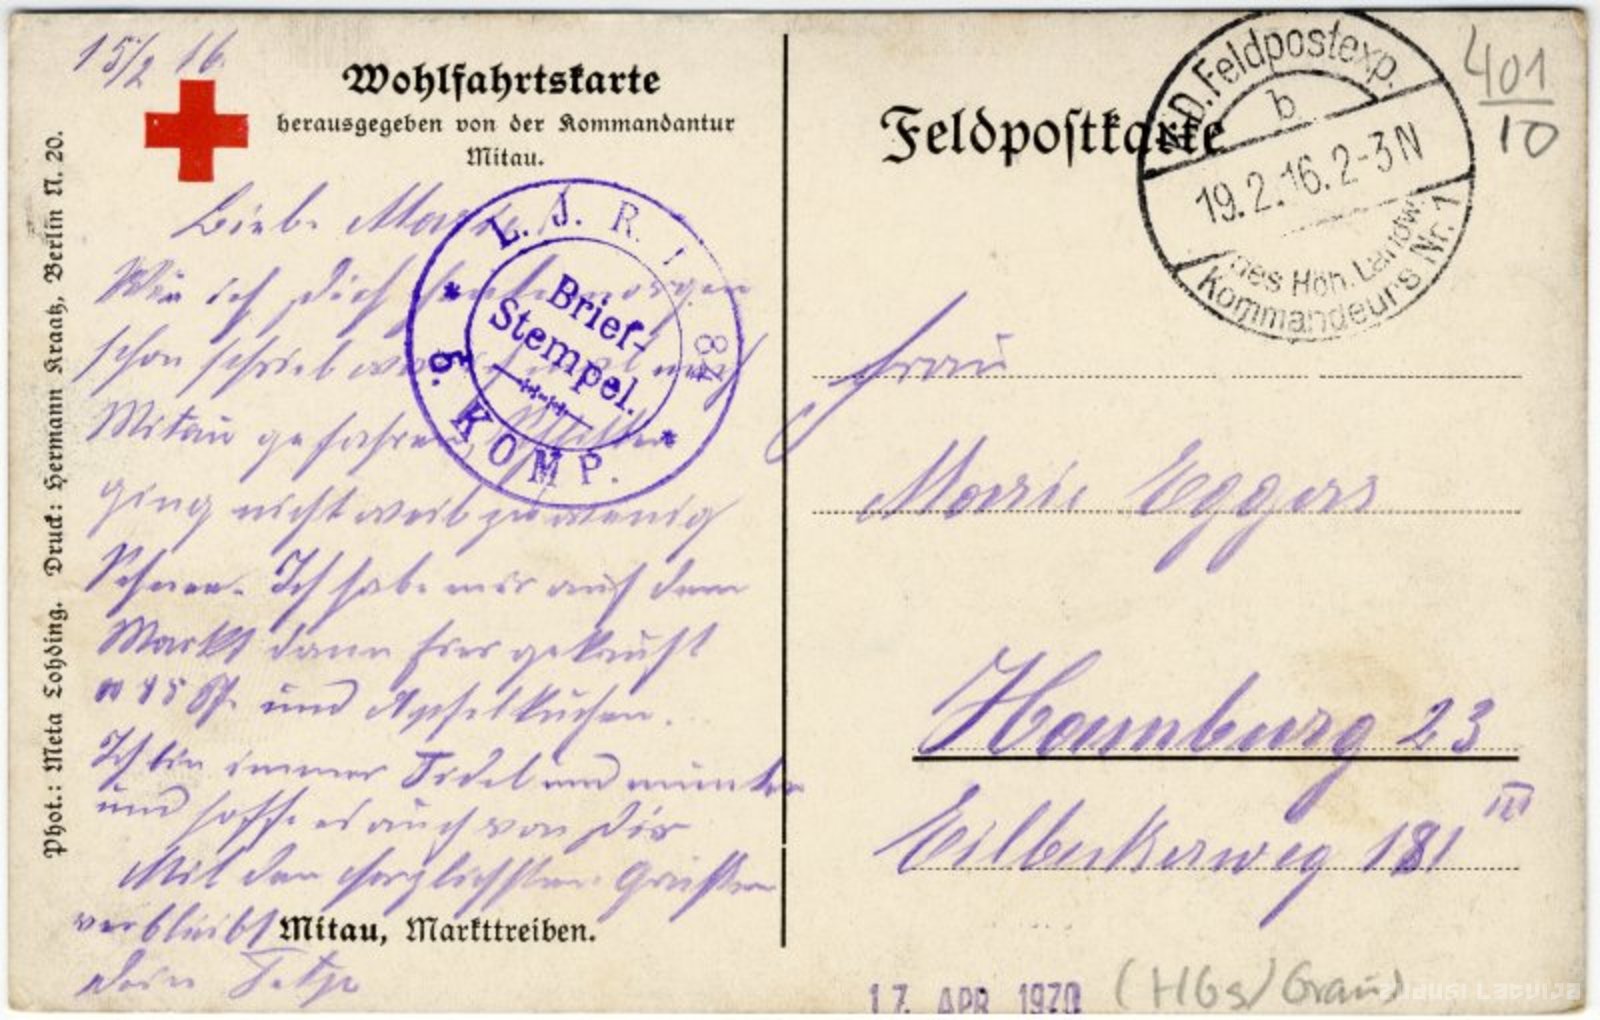 15/2 16.
Wohlfahrtskarte
herausgegeben von der Kommandantur
Mitau.
Liebe
Wie ich Dich heute morgen
schon schrieb nach
Mitau gefahren,
ging nicht weil zu wenig
Schnee. Ich habe mir auf dem
Markt dann gekauft
und Apfelkuchen.
Ich bin immer Fidel und munter
und hoffe es auch von Dir
Mit den herzlichsten Grüßen
verbleibt
dein
Mitau, Markttreiben.
Phot.: Meta Lohding. Druck: Hermann Kraatz, Berlin N. 20.
L. J. R. 87
Brief-
Stempel.
KOMP.
Feldpostkarte
K.D. Feldpostexp.
b
19.2.16. 2-3N
des Höh. Landw.
Kommandeurs Nr. 1
401
10
Frau
Marie Eggers
Hamburg 23
Eilbeckerweg 181 III
17. APR 1970
(HGs/Graud
zudusi Latvija